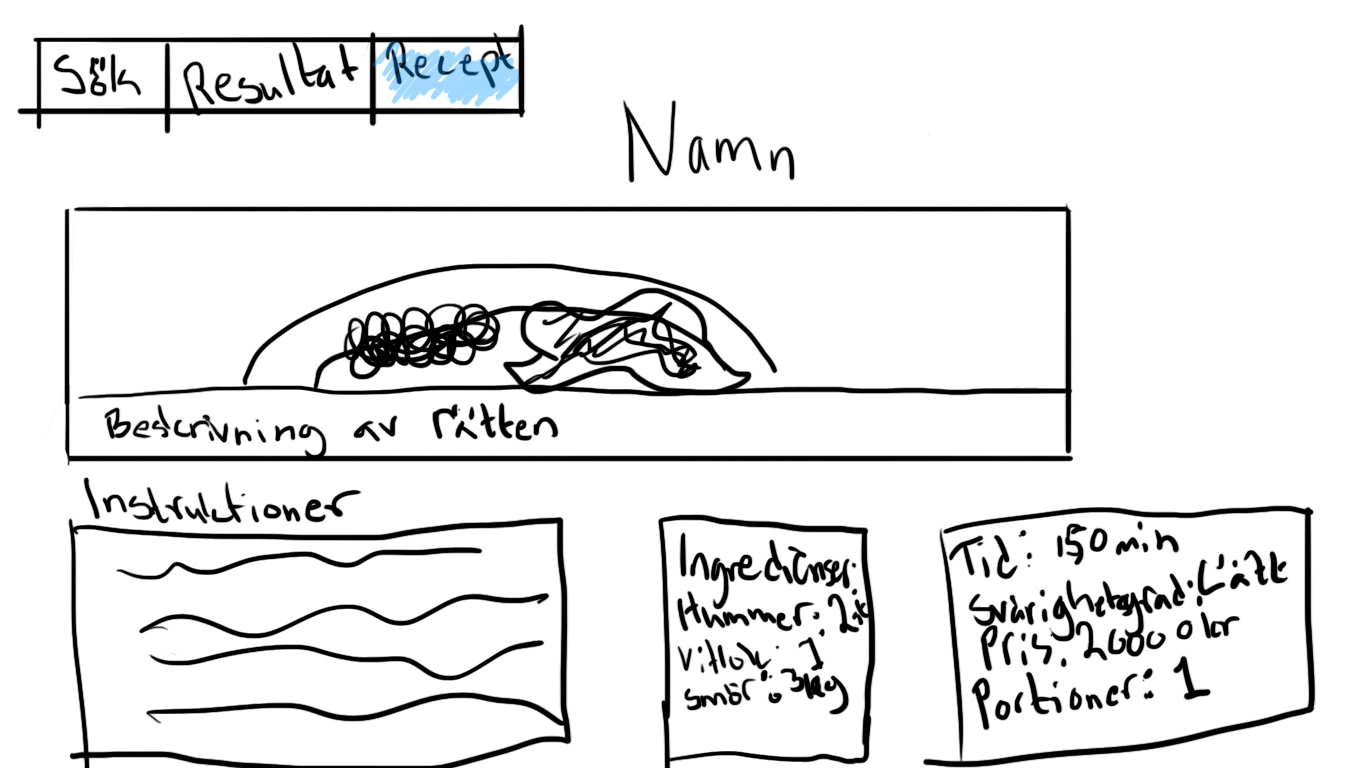 Sök Resultat Recept
Namn
Beskrivning av rätten
Instruktioner
Ingredienser:
Hummer: 2st
Vitlök: 1
Smör: 3kg
Tid: 150 min
Svårighetsgrad: Lätt
Pris: 20000 kr
Portioner: 1